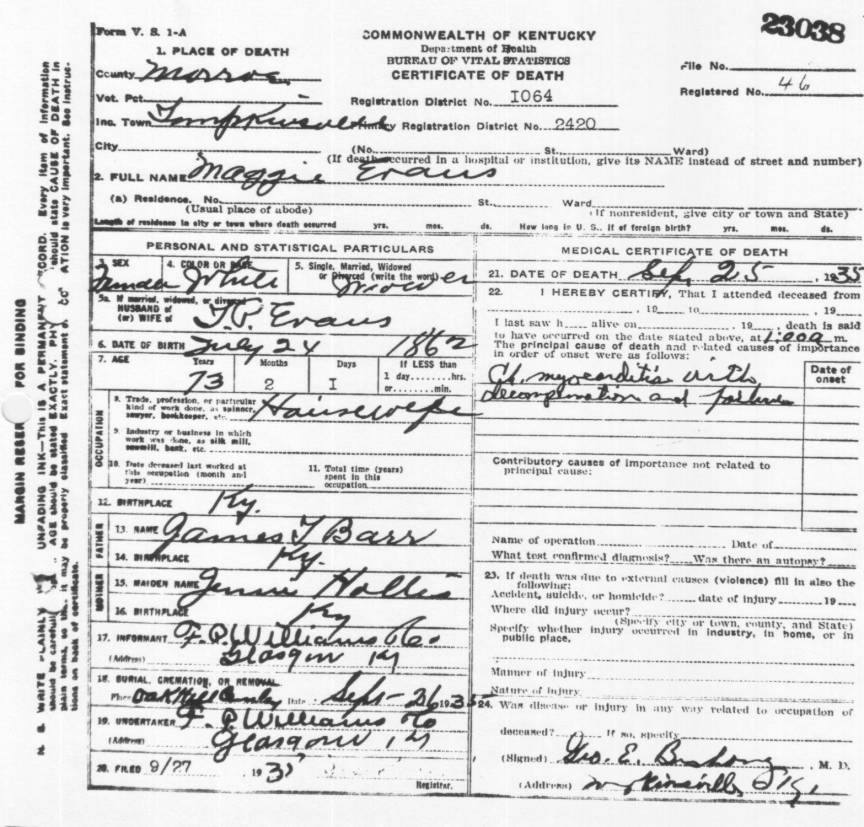 23038
Form V. S. 1-A
COMMONWEALTH OF KENTUCKY
Department of Health
BUREAU OF VITAL STATISTICS
CERTIFICATE OF DEATH
1. PLACE OF DEATH
County Monroe
File No.
Registered No. 46
Vot. Pct.
Registration District No. 1064
Inc. Town Tompkinsville
Primary Registration District No. 2420
City (No. St. Ward)
(If death occurred in a hospital or institution, give its NAME instead of street and number)
2. FULL NAME Maggie Evans
(a) Residence. No. St., Ward
(Usual place of abode) (If nonresident, give city or town and State)
Length of residence in city or town where death occurred yrs. mos. ds. How long in U. S., if of foreign birth? yrs. mos. ds.
PERSONAL AND STATISTICAL PARTICULARS
3. SEX 4. COLOR OR RACE 5. Single, Married, Widowed
or Divorced (write the word)
White
5a. If married, widowed, or divorced
HUSBAND of
(or) WIFE of T.P. Evans
6. DATE OF BIRTH July 24 1862
7. AGE Years Months Days If LESS than
1 day hrs.
or min.
73 2 1
OCCUPATION
8. Trade, profession, or particular
kind of work done, as spinner,
sawyer, bookkeeper, etc. Housewife
9. Industry or business in which
work was done, as silk mill,
sawmill, bank, etc.
10. Date deceased last worked at
this occupation (month and
year)
11. Total time (years)
spent in this
occupation
12. BIRTHPLACE Ky.
FATHER
13. NAME James T Barr
14. BIRTHPLACE Ky.
MOTHER
15. MAIDEN NAME Jennie Hollis
16. BIRTHPLACE Ky
17. INFORMANT F.P. Williams Co.
(Address) Glasgow Ky
18. BURIAL, CREMATION, OR REMOVAL
Place Oak Hill Date Sept - 26 1935
19. UNDERTAKER F. P. Williams Co
(Address) Glasgow Ky
20. FILED 9/27 1935
Registrar.
MEDICAL CERTIFICATE OF DEATH
21. DATE OF DEATH Sep, 25, 1935
22. I HEREBY CERTIFY, That I attended deceased from
, 19 to , 19
I last saw h alive on , 19 , death is said
to have occurred on the date stated above, at 1:00 a m.
The principal cause of death and related causes of importance
in order of onset were as follows:
Date of
onset
Ch. myocarditis with
decompensation and failure
Contributory causes of importance not related to
principal cause:
Name of operation Date of
What test confirmed diagnosis? Was there an autopsy?
23. If death was due to external causes (violence) fill in also the
following:
Accident, suicide, or homicide? date of injury 19
Where did injury occur?
(Specify city or town, county, and State)
Specify whether injury occurred in industry, in home, or in
public place.
Manner of injury
Nature of injury
24. Was disease or injury in any way related to occupation of
deceased? If so, specify
(Signed) Geo. E. Bushong, M. D.
(Address) Ky.
MARGIN RESER FOR BINDING
N. B. WRITE PLAINLY UNFADING INK—This is A PERMANENT CORD. Every item of information
should be carefull AGE should be stated EXACTLY. PHY should state CAUSE OF DEATH in
plain terms, so that it may be properly classified. Exact statement of OCC ATION is very important. See instruc-
tions on back of certificate.